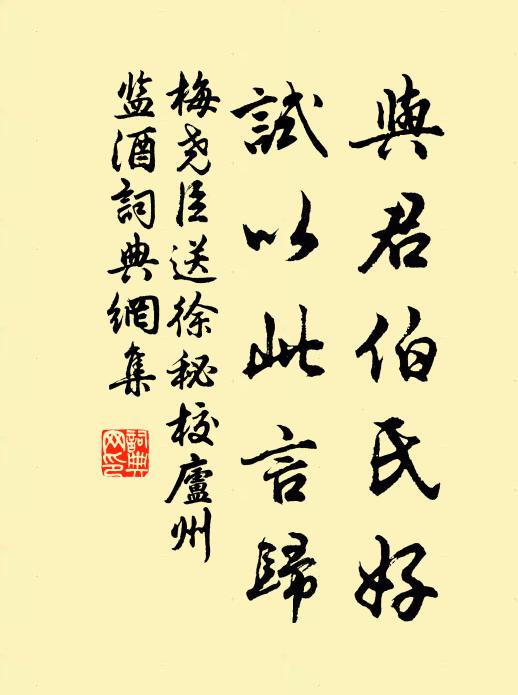 與君伯氏好
試以此言歸
梅堯臣送徐秘校廬州
监酒詞典網集
詞典
网印